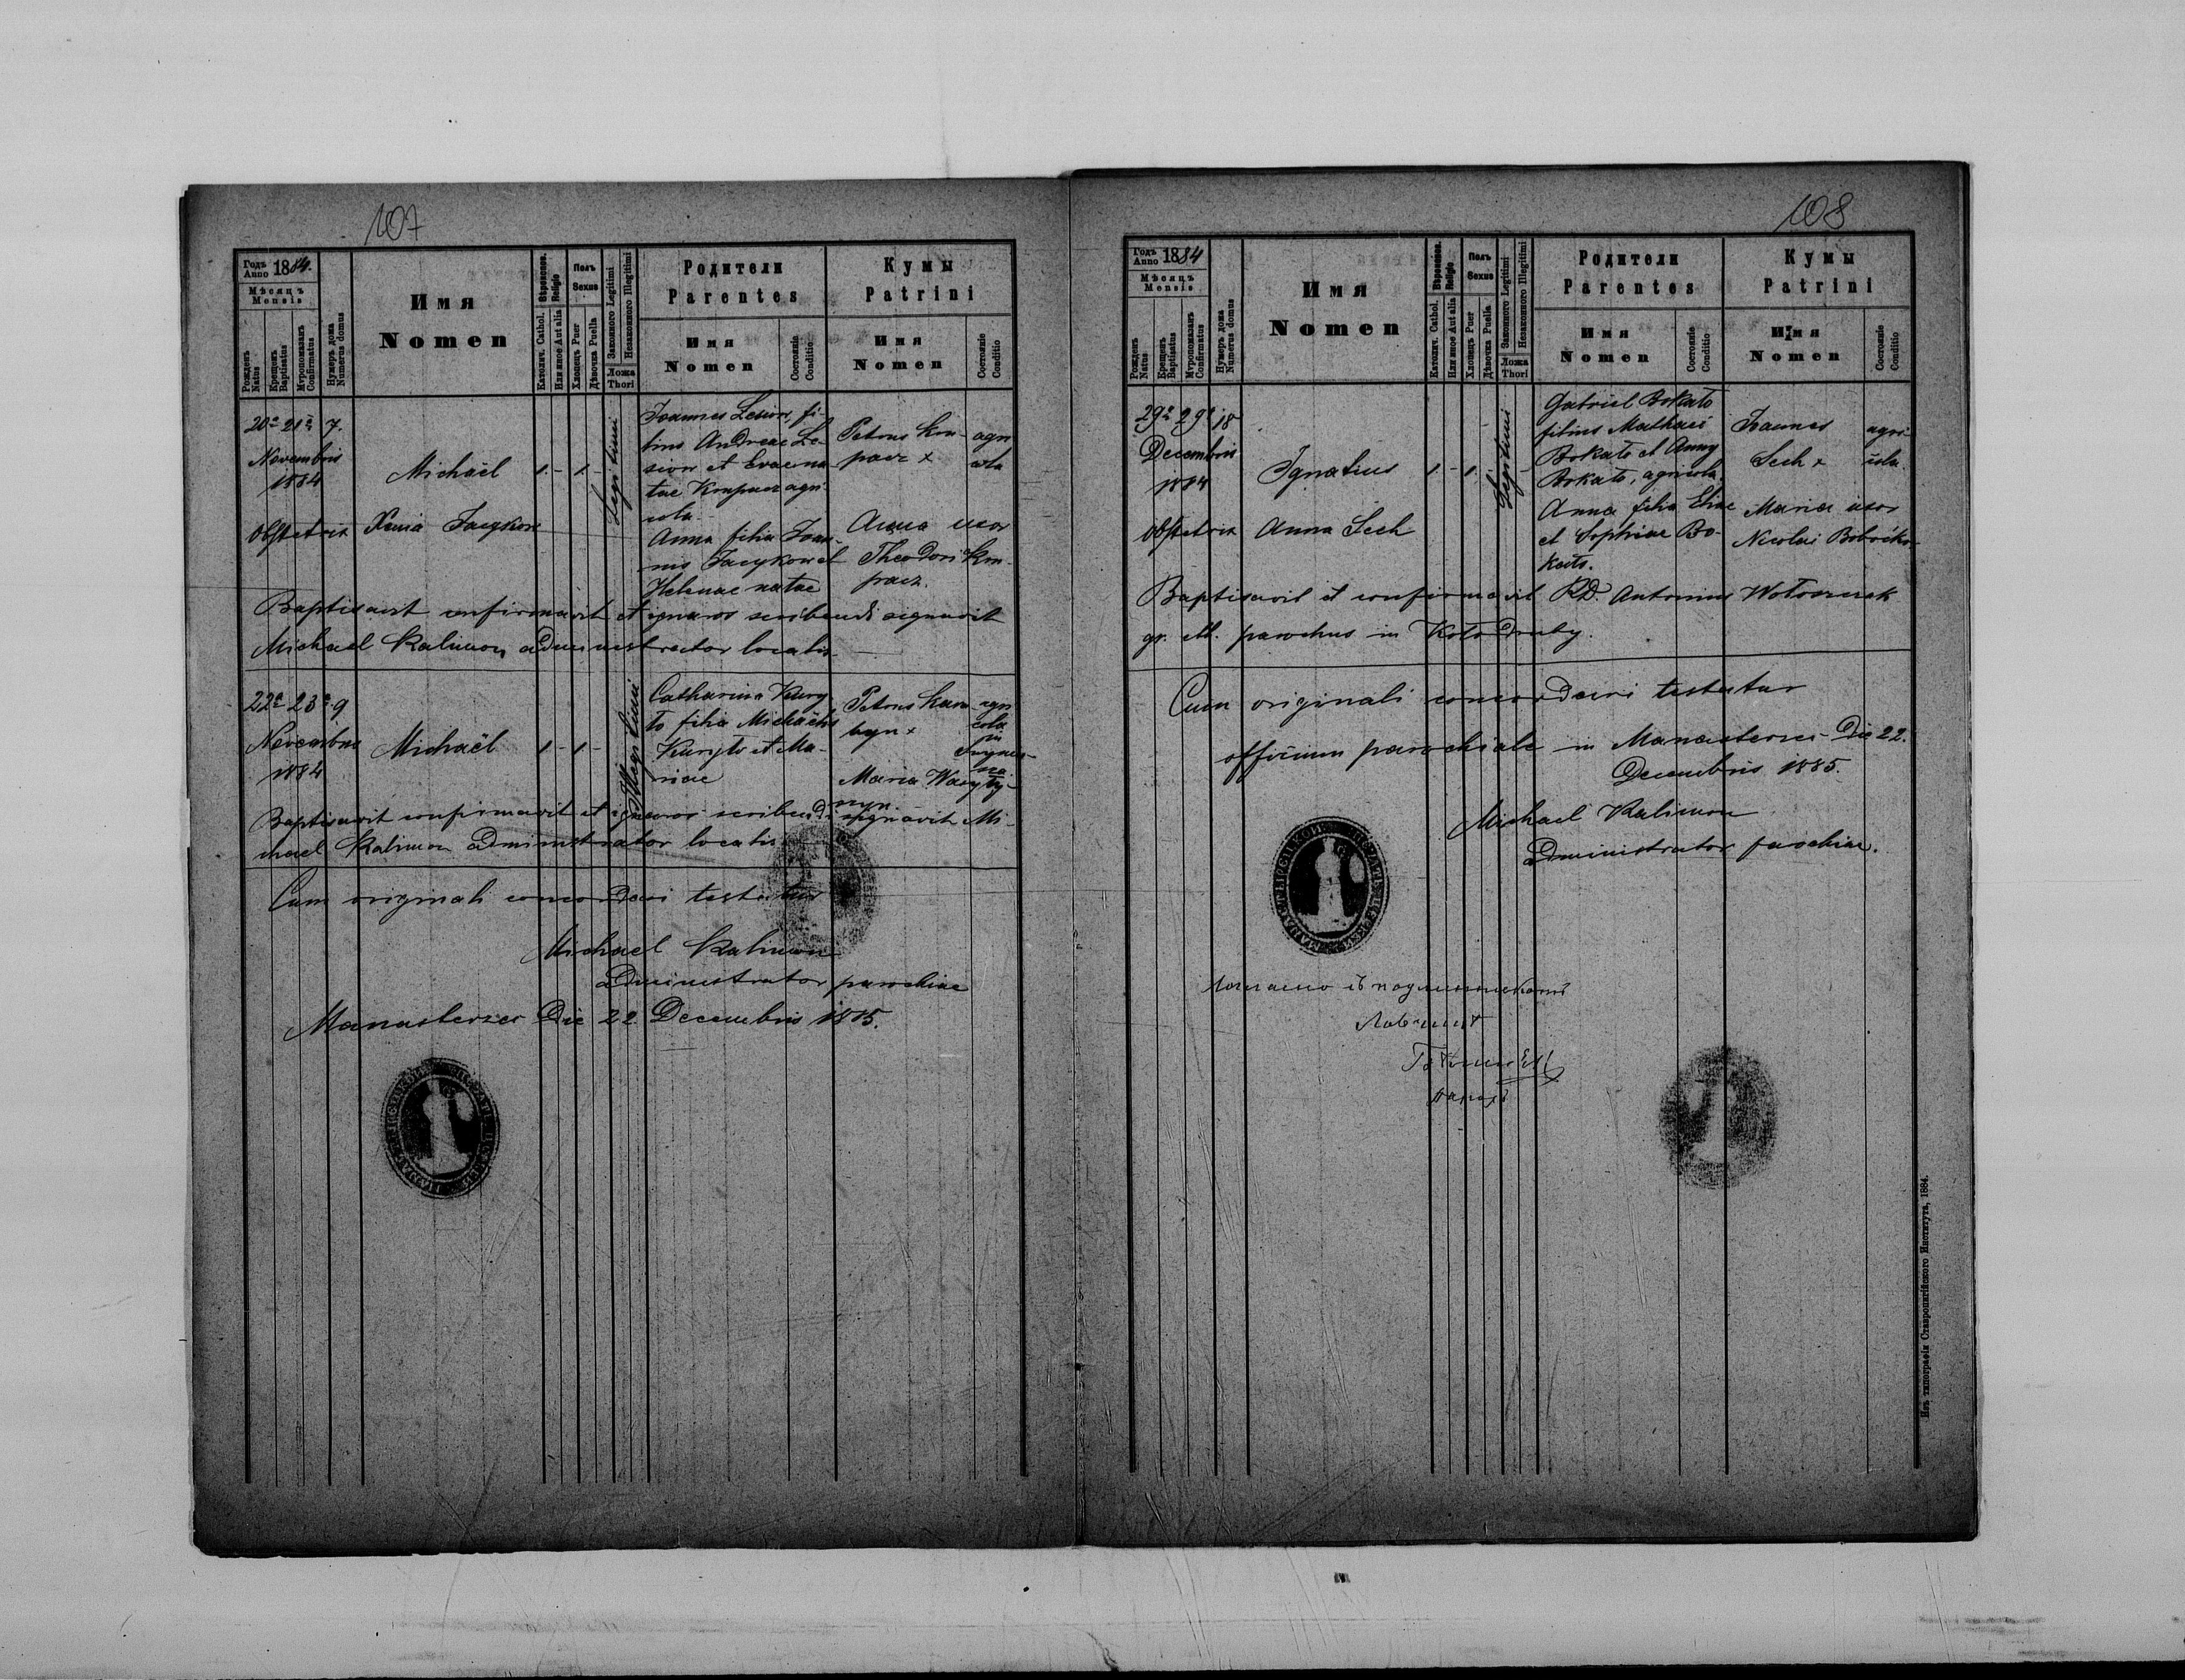 107
Годъ Anno 1884.
Мѣсяцъ
Mensis
Рожденъ Natus
Крещенъ Baptisatus
Муропомазанъ Confirmatus
Нумеръ дома Numerus domus
Имя
Nomen
Вѣроиспов. Religio
Католич. Cathol.
Или иное Aut alia
Полъ
Sexus
Хлопецъ Puer
Дѣвочка Puella
Законного Legitimi
Незаконного Illegitimi
Ложа
Thori
Родители
Parentes
Имя
Nomen
Состояніе Conditio
Кумы
Patrini
Имя
Nomen
Состояніе Conditio
20a 21a 7.
Novembris
1884
Michaël
1 - 1 -
Legitimi
Joannes Lesion, fi-
lius Andreae Le-
sion et
agri-
cola
Anna filia Joan-
nis Jacykow et
Helenae natae
Petrus Kom-
pacz x
agri
cola
Anna uxor
Theodori Kom-
pacz.
Obstetrix Xenia Jacykow
Baptisavit confirmavit et ignaros scribendi signavit
Michael Kalimon administrator localis
22a 23a 9
Novembris
1884
Michaël
1 - 1 -
Illegitimi
Catharina Kury-
to filia Michaelis
Kuryto et Ma-
riae
Petrus
x
agri
cola
in
Maria
Baptisavit confirmavit et ignaros scribendi signavit Mi-
chael Kalimon administrator localis
Cum originali concordari testatur
Michael Kalimon
administrator parochiae
Manasterzec Die 22 Decembris 1885.
108
Годъ Anno 1884
Мѣсяцъ
Mensis
Рожденъ Natus
Крещенъ Baptisatus
Муропомазанъ Confirmatus
Нумеръ дома Numerus domus
Имя
Nomen
Вѣроиспов. Religio
Католич. Cathol.
Или иное Aut alia
Полъ
Sexus
Хлопецъ Puer
Дѣвочка Puella
Законного Legitimi
Незаконного Illegitimi
Ложа
Thori
Родители
Parentes
Имя
Nomen
Состояніе Conditio
Кумы
Patrini
Имя
Nomen
Состояніе Conditio
29a 29a 18
Decembris
1884
Ignatius
1 - 1
Legitimi
Gabriel Bokało
filius Mathaei
Bokało et Anny
Bokało, agricola
Anna filia Eliae
et Sophiae Bo-
kało.
Joannes
Sech x
agri-
cola.
Maria uxor
Nicolai
Obstetrix Anna Sech
Baptisavit et confirmavit RD. Antonius Wołoszczak
gr. parochus in Kołodruby.
Cum originali concordari testatur
officium parochiale in Manasterzec Die 22.
Decembris 1885.
Michael Kalimon
administrator parochiae.
Изъ типографіи Ставропигійского Института, 1884.